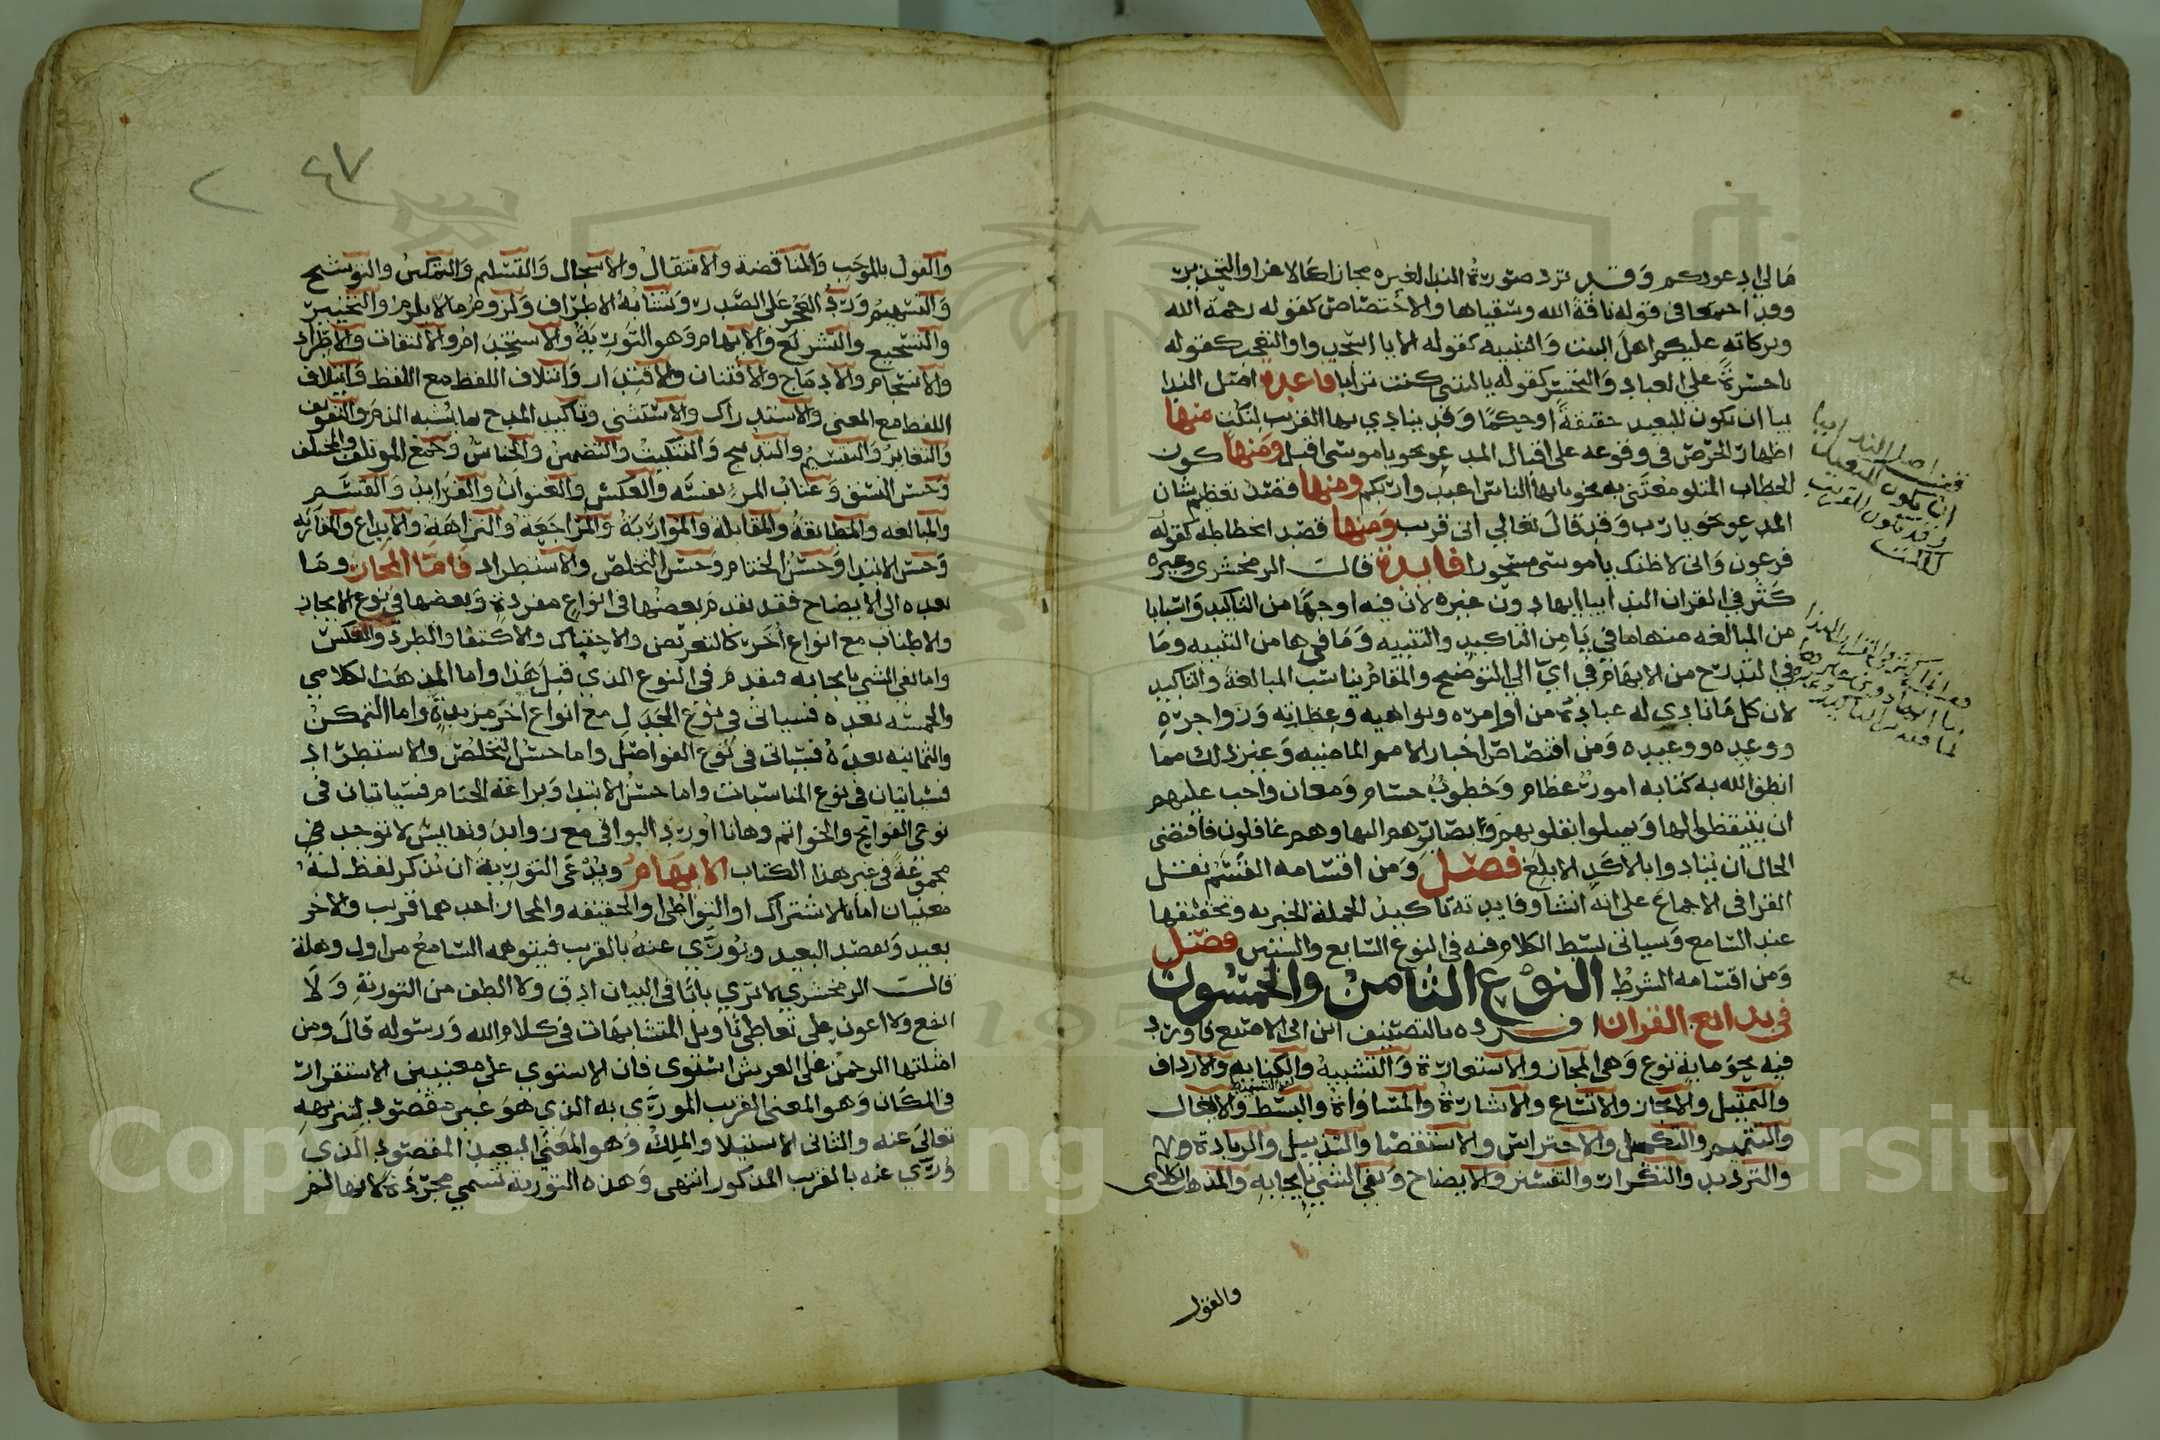 مالي ادعوكم وقد ترد صورة الندا لغيره مجازا كالاغرا والتحذير
وقد اجتمعا في قوله ناقة الله وسقياها والاختصاص كقوله رحمة الله
وبركاته عليكم اهل البيت والتنبيه كقوله الا يا اسجدوا والتعجب كقوله
يا حسرة على العباد والتحسر كقوله يا ليتني كنت ترابا قاعدة اصل الندا
بيا ان يكون للبعيد حقيقة او حكما وقد ينادي بها القريب لنكت منها
اظهار الحرص في وقوعه على اقبال المدعو نحو يا موسى اقبل ومنها كون
الخطاب المتلو معتنى به نحو يا ايها الناس اعبدوا ربكم ومنها قصد تعظيم شان
المدعو نحو يا رب وقد قال تعالى اني قريب ومنها قصد انحطاطه كقوله
فرعون واني لاظنك يا موسى مسحورا فايدة قال الزمخشري وغيره
كثر في القران الندا بيا ايها دون غيره لان فيه اوجها من التاكيد واسبابا
من المبالغه منها ما في يا من التاكيد والتنبيه وما في ها من التنبيه وما
في التدرج من الابهام في اي الى التوضيح والمقام يناسب المبالغة والتاكيد
لان كل ما نادى له عباده من اوامره ونواهيه وعظاته وزواجره
ووعده ووعيده ومن اقتصاص اخبار الامم الماضيه وغير ذلك مما
انطق الله به كتابه امور عظام وخطوب جسام ومعان واجب عليهم
ان يتيقظوا لها ويميلوا بقلوبهم وابصارهم اليها وهم غافلون فاقتضى
الحال ان ينادوا بالاكد الابلغ فصل ومن اقسامه القسم نقل
القرافي الاجماع على انه انشا وفايدته تاكيد الجملة الخبريه وتحقيقها
عند السامع وسياتي بسط الكلام فيه في النوع السابع والستين فصل
ومن اقسامه الشرط النوع الثامن والخمسون
في بدايع القران افرده بالتصنيف ابن ابي الاصبع فاورد
فيه نحو ماية نوع وهي المجاز والاستعارة والتشبيه والكنايه والارداف
والتمثيل والايجاز والاتساع والاشارة والمساواة والبسط والايغال
والتتميم والتكميل والاحتراس والاستقصا والتذييل والزيادة
والترديد والتكرار والتفسير والايضاح ونفي الشي بايجابه والمذهب الكلامي
والقول
٤٧
والقول بالموجب والمناقضة والانتقال والاسجال والتسليم والتمكين والتوشيح
والتسهيم ورد العجز على الصدر وتشابه الاطراف ولزوم ما لا يلزم والتخيير
والتسجيع والتشريع والابهام وهو التورية والاستخدام والالتفات والاطراد
والانسجام والادماج والافتنان والاقتدار وائتلاف اللفظ مع اللفظ وائتلاف
اللفظ مع المعنى والاستدراك والاستثني وتاكيد المدح بما يشبه الذم والتفويف
والتغاير والتقسيم والتدبيج والتنكيت والتضمين والجناس وجمع الموتلف والمختلف
وحسن النسق وعتاب المرء نفسه والعكس والعنوان والفرايد والقسم
والمبالغه والمطابقة والمقابلة والمواربة والمراجعة والنزاهة والابداع والمقارنه
وحسن الابتدا وحسن الختام وحسن التخلص والاستطراد فاما المجاز وما
بعده الى الايضاح فقد تقدم بعضها في انواع مفردة وبعضها في نوع الايجاز
والاطناب مع انواع أخر كالتعريض والاحتباك والاكتفا والطرد والعكس
واما نفي الشي بايجابه فتقدم في النوع الذي قبل هذا واما المذهب الكلامي
والخمسه بعده فسياتي في نوع الجدل مع انواع أخر مزيدة واما التمكين
والثمانيه بعده فسياتي في نوع الفواصل واما حسن التخلص والاستطراد
فسياتيان في نوع المناسبات واما حسن الابتدا وبراعة الختام فسياتيان في
نوعي الفواتح والخواتم وها انا اورد البواقي مع زوايد ونفايس لا توجد
مجموعة في غير هذا الكتاب الابهام ويدعى التورية ان يذكر لفظ له
معنيان اما بالاشتراك او التواطي او الحقيقه والمجاز احدهما قريب والاخر
بعيد ويقصد البعيد ويورّي عنه بالقريب فيتوهمه السامع من اول وهلة
قال الزمخشري لا ترى بابا في البيان ادق ولا الطف من التورية ولا
انفع ولا اعون على تعاطي تاويل المتشابهات في كلام الله ورسوله قال ومن
امثلتها الرحمن على العرش استوى فان الاستوي على معنيين الاستقرار
في المكان وهو المعنى القريب المورّى به الذي هو غير مقصود لتنزيهه
تعالى عنه والثاني الاستيلا والملك وهو المعنى البعيد المقصود الذي
ورّي عنه بالقريب المذكور انتهى وهذه التورية تسمى مجردة لانها لم
Copyright © King Saud University